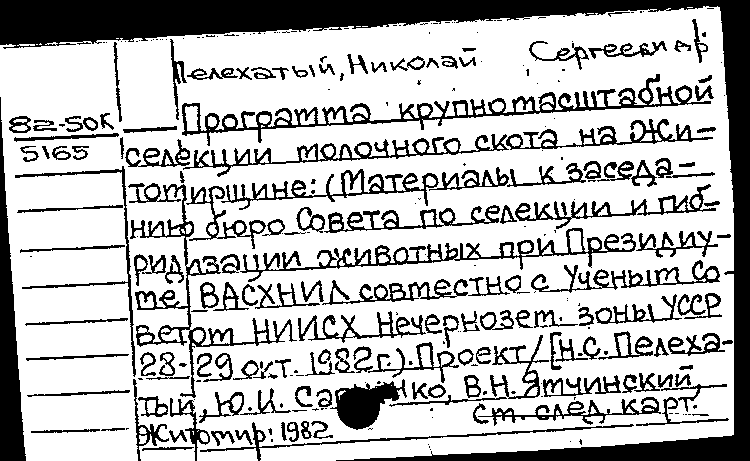 Пелехатый, Николай Сергеевич
82-50К
5165
Программа крупномасштабной
селекции молочного скота на Жи-
томирщине: (Материалы к заседа-
нию бюро Совета по селекции и гиб-
ридизации животных при Президиу-
ме ВАСХНИЛ совместно с Ученым Со-
ветом НИИСХ Нечернозем. зоны УССР
28-29 окт. 1982г.). Проект/[Н.С. Пелеха-
тый, Ю.И. В.Н. Ятчинский,
См. след. карт.
Житомир: 1982.